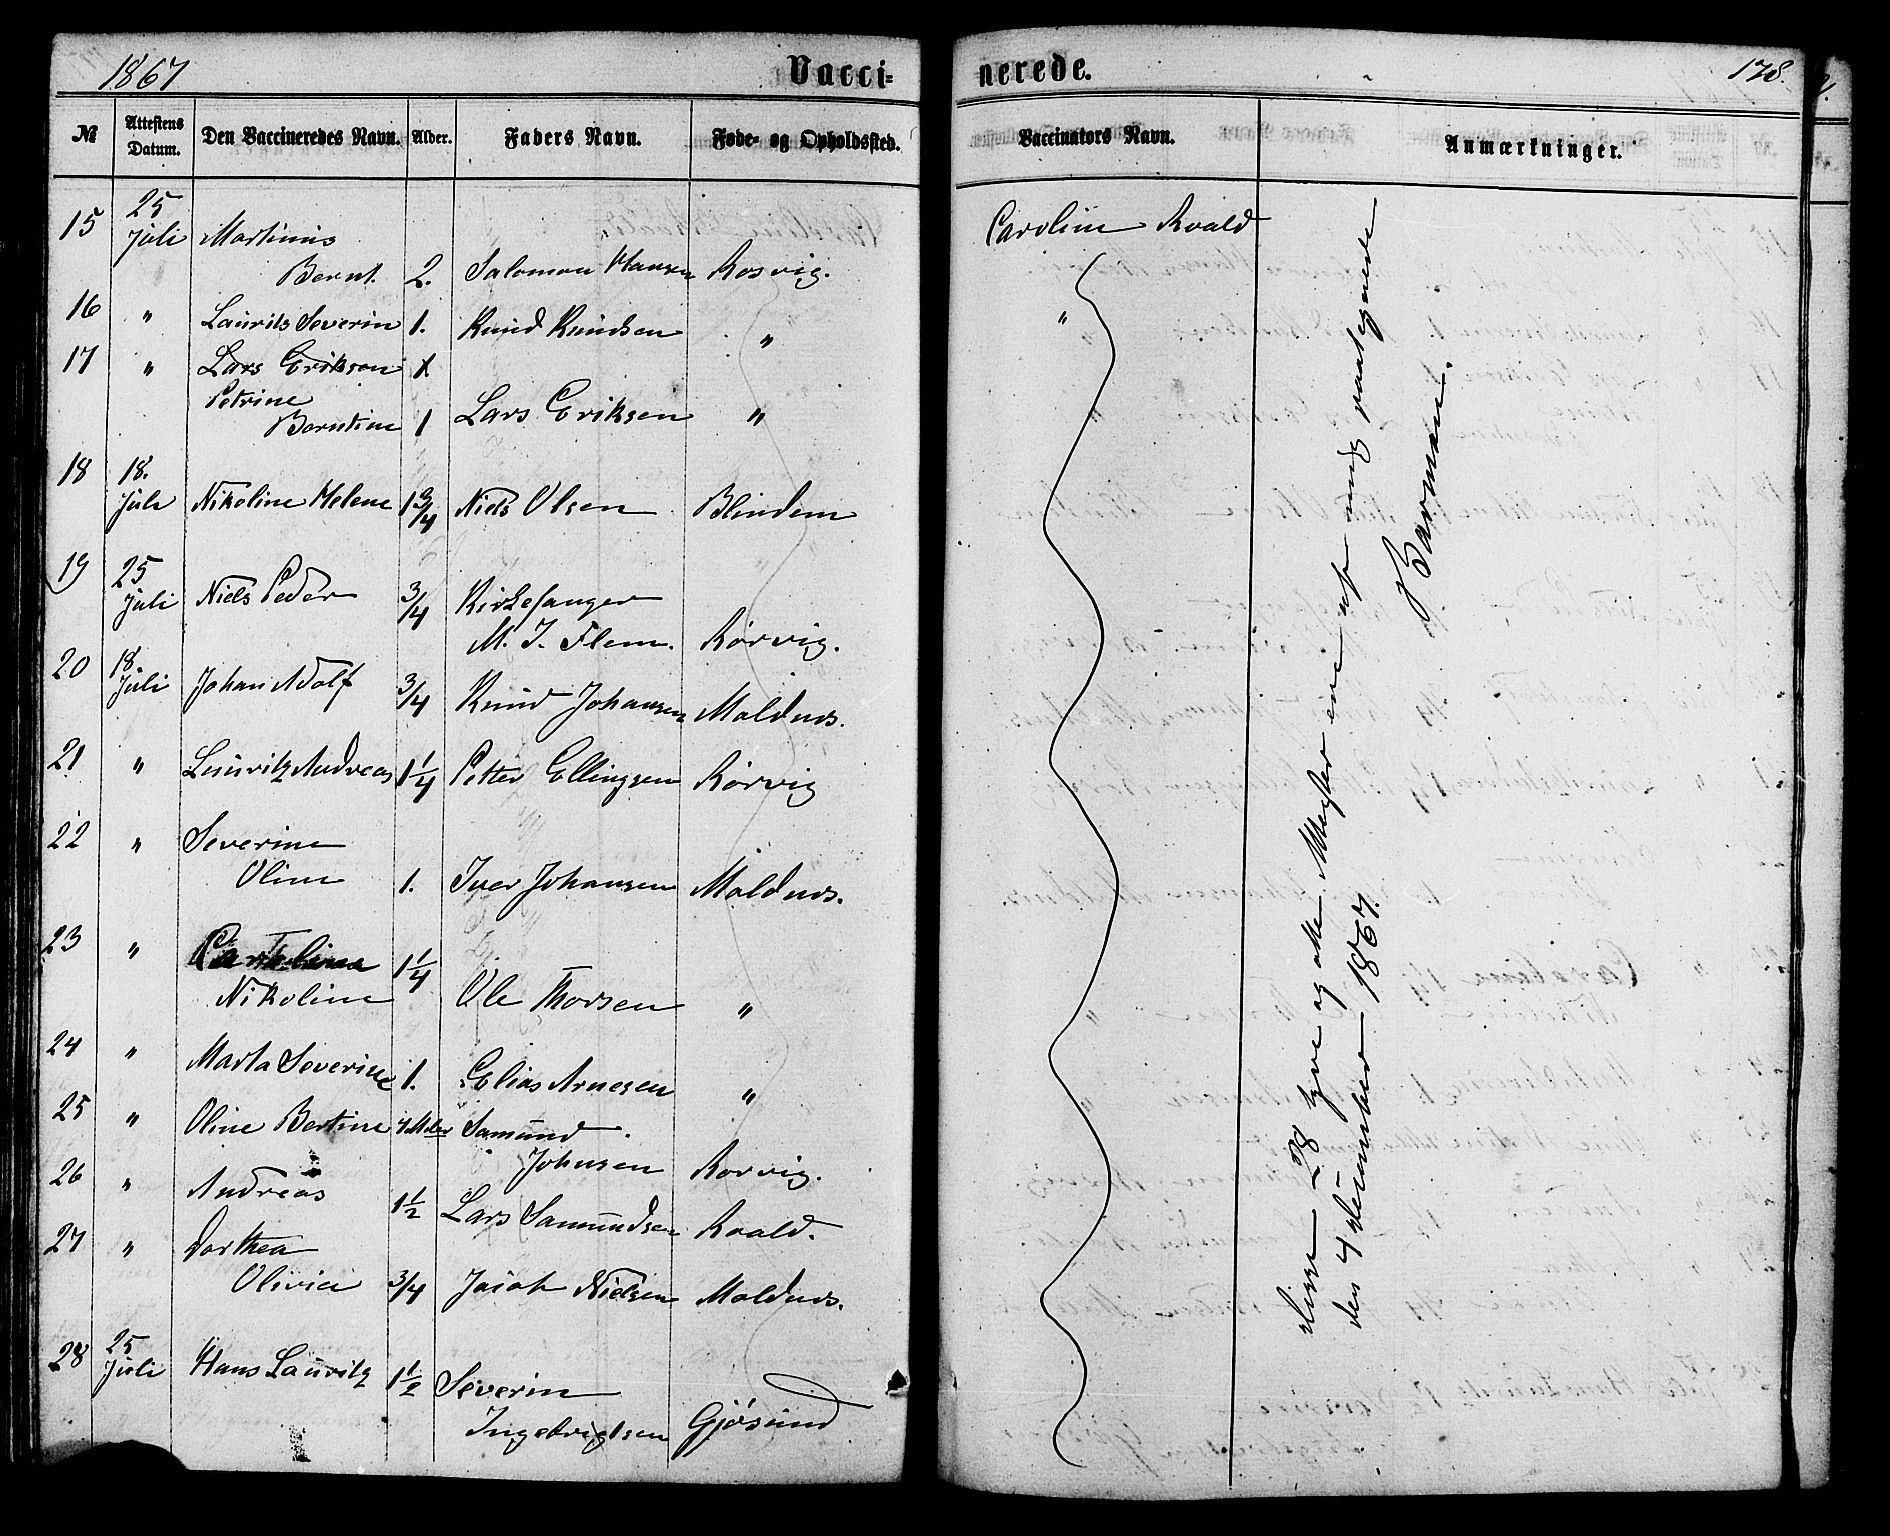 1867 Vacci-
№ Attestens Datum. Den Vaccineredes Navn. Alder. Faders Navn. Føde- og Opholdssted.
15 25 Juli Martinus
Bernt. 2. Salomon Hansen Rosvig.
16 " Laurits Severin 1. Knud Knudsen "
17 " Lars Eriksen 1
Petrine
Berntine 1 Lars Eriksen "
18 18. Juli Nikoline Helene 1 3/4 Niels Olsen Blindem
19 25 Juli Niels Peder 3/4 Kirkesanger
M. J. Flem. Rørvig.
20 18. Juli Johan Adolf 3/4 Knud Johansen Moldnes.
21 " Lauritz Andreas 1 1/4 Petter Ellingsen Rørvig
22 " Severine
Oline 1. Iver Johansen Moldnes.
23 " 1 1/4
Nikoline Ole Thorsen "
24 " Marta Severine 1. Elias Arnesen "
25 " Oline Bertine 4 Samund
Johnsen Rørvig.
26 " Andreas 1 1/2 Lars Samundsen Roald.
27 " Dorthea
Olivia 3/4 Jacob Nielsen Moldnes.
28 25 Juli Hans Lauritz 1 1/2 Severin
Ingebrigtsen Gjøsund
nerede. 178.
Vaccinators Navn. Anmærkninger.
Caroline Roald
"
Disse 28 tyve og otte Attester ere af mig paategnede
den 4 December 1867.
Barman.